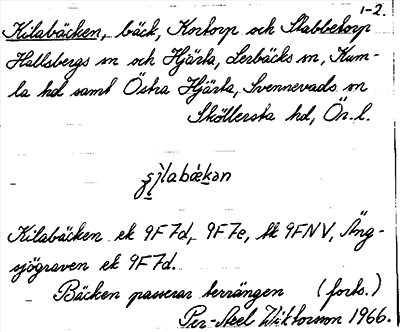 1-2.
Kilabäcken, bäck, Kortorp och Skabbetorp
Hallsbergs sn och Hjärta, Lerbäcks sn, Kum-
la hd samt Östra Hjärta, Svennevads sn
Sköllersta hd, Ör. l.
Kilabäcken ek 9F7d, 9F7e, tk 9FNV, Äng-
sjögraven ek 9F7d.
Bäcken passerar terrängen (forts.)
Per-Axel Wiktorsson 1966.